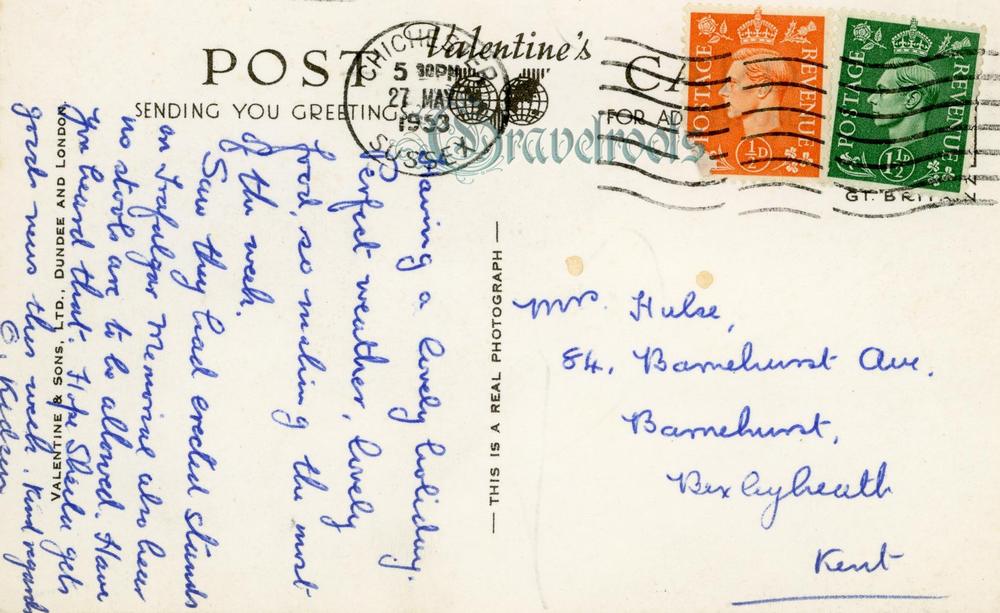 POST CARD
Valentine's
SENDING YOU GREETINGS
FOR AD
CHICHESTER
5 30PM
27 MAY
1953
SUSSEX
Gravelroots
POSTAGE REVENUE
½D
POSTAGE REVENUE
1½D
GT. BRITAIN
Having a lovely holiday.
Perfect weather, lovely
food, so making the most
of the week.
Saw they had erected stands
on Trafalgar Memorial also hear
no stools are to be allowed. Have
you heard that. Hope Sheila gets
goods news this week. Kind regards
VALENTINE & SONS, LTD., DUNDEE AND LONDON
— THIS IS A REAL PHOTOGRAPH —
Mrs. Hulse,
84, Barnehurst Ave.
Barnehurst,
Bexleyheath
Kent